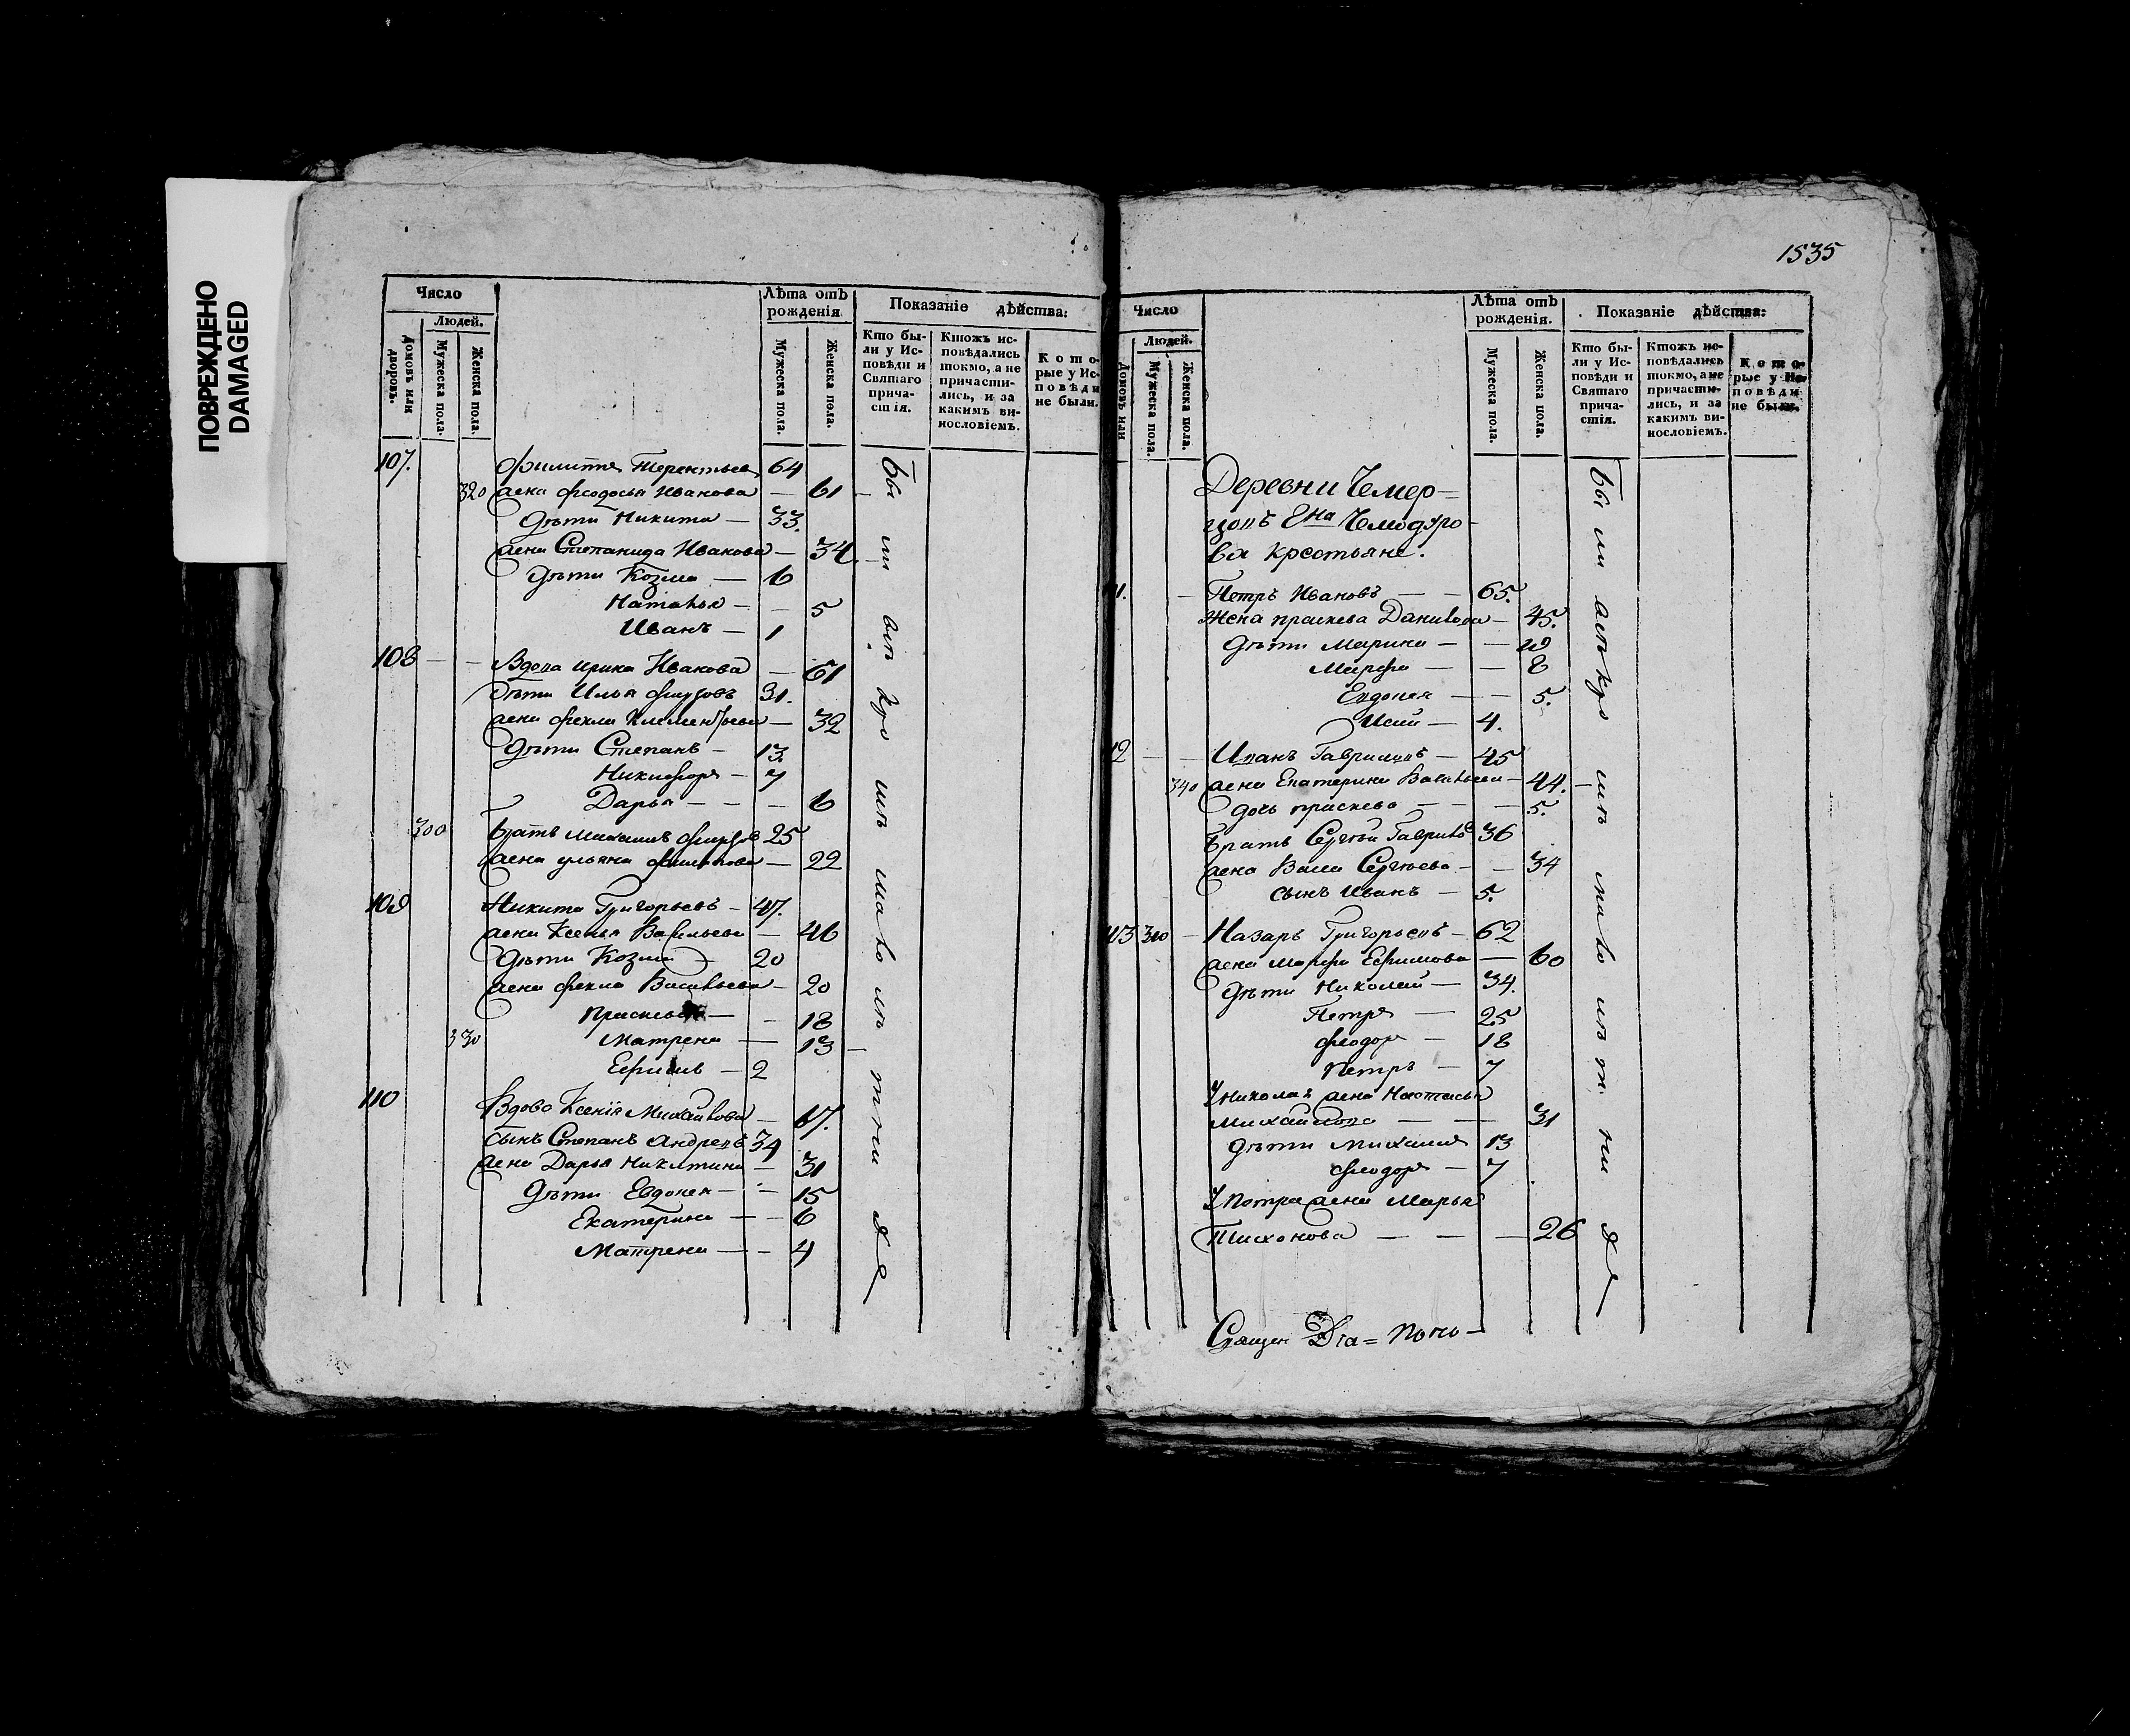 ПОВРЕЖДЕНО
DAMAGED
Число
Людей.
Домовъ или дворовъ.
Мужеска пола.
Женска пола.
Лѣта отъ рожденія
Мужеска пола.
Женска пола.
Показаніе дѣйства:
Кто бы-
ли у Ис-
повѣди и
Святаго
прича-
стія.
Ктожъ ис-
повѣдались
токмо, а не
причасти-
лись, и за
какимъ ви-
нословіемъ.
Кото-
рые у Ис-
повѣди
не были.
107. Филиппъ Терентьев 64
320 жена Феодосья Иванова — 61
Дѣти Никита — 33.
жена Степанида Иванова — 34
Дѣти Козма — 6
Наталья — — 5
Иванъ — 1
108 — — Вдова Ирина Иванова — 61
Дѣти Илья 31.
жена Фекла Климентьева — 32
Дѣти Степанъ — 13.
Никифоръ — 7
Дарья — — — 6
300 Братъ Михаилъ 25
жена Ульяна Филипова — 22
109 Никита Григорьевъ — 47.
жена Ксенья Васильева — 46
Дѣти Козма — 20
жена Фекла Васильева — 20
Прасковья — — 18
330 Матрена — 13
Ефимъ — 2
110 Вдова Ксенія Михайлова — 67.
сынъ Степанъ Андревъ 34
жена Дарья Никитина — 31
Дѣти Евдокея — — 15
Екатерина — — 6
Матрена — — 4
1535
Число
Людей.
Домовъ или
Мужеска пола.
Женска пола.
Лѣта отъ рожденія.
Мужеска пола.
Женска пола.
Показаніе дѣйства:
Кто бы-
ли у Ис-
повѣди и
Святаго
прича-
стія.
Ктожъ ис-
повѣдались
токмо, а не
причасти-
лись, и за
какимъ ви-
нословіемъ.
Кото-
рые у Ис-
повѣди
не были.
Деревни Чемер-
цовъ Гна Чемодуро-
ва крестьяне.
Петръ Ивановъ — — 65.
Жена Праскева Данилова — 45.
Дѣти Марина — —
Марфа — — 8
Евдокея — — 5.
4.
12 — — Иванъ Гавриловъ — 45
340 жена Екатерина Васильева — 44.
дочь Праскева — — — 5.
Братъ Сергѣй Гаврилов 36
жена Сергѣева — — 34
сынъ Иванъ — 5.
113 310 — Назаръ Григорьевъ — 62
жена Марфа Ефимова — 60
Дѣти Николай — 34.
Петръ — 25
Феодоръ — 18
Петръ — 7
У Николая жена Настасья
Михайлова — — 31
Дѣти Михаилъ 13
Феодоръ — 7
У Петра жена Марья
Тихонова — — — 26